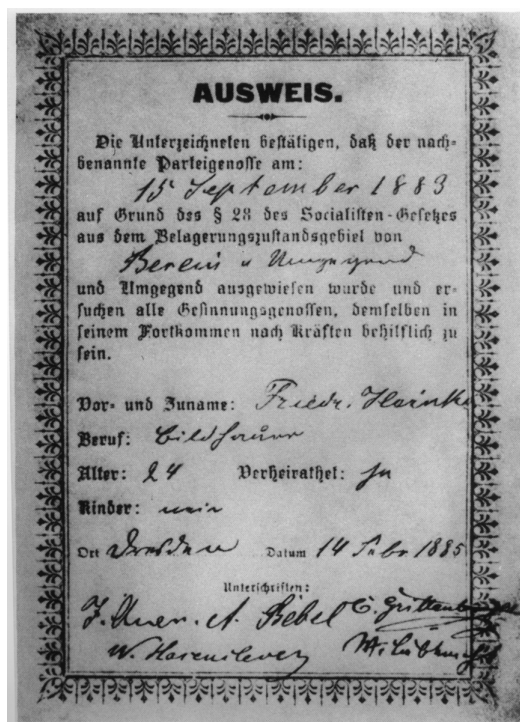 AUSWEIS.
Die Unterzeichneten bestätigen, daß der nach-
benannte Parteigenosse am:
15 September 1883
auf Grund des § 28 des Socialisten-Gesetzes
aus dem Belagerungszustandsgebiet von
Berlin u Umgegend
und Umgegend ausgewiesen wurde und er-
suchen alle Gesinnungsgenossen, demselben in
seinem Fortkommen nach Kräften behilflich zu
sein.
Vor- und Zuname: Friedr. Heinke
Beruf: Bildhauer
Alter: 24 Verheirathet: ja
Kinder: nein
Ort Dresden Datum 14 Febr 1885
Unterschriften:
I. Auer. A. Bebel C. Grillenberger
W. Hasenclever W Liebknecht